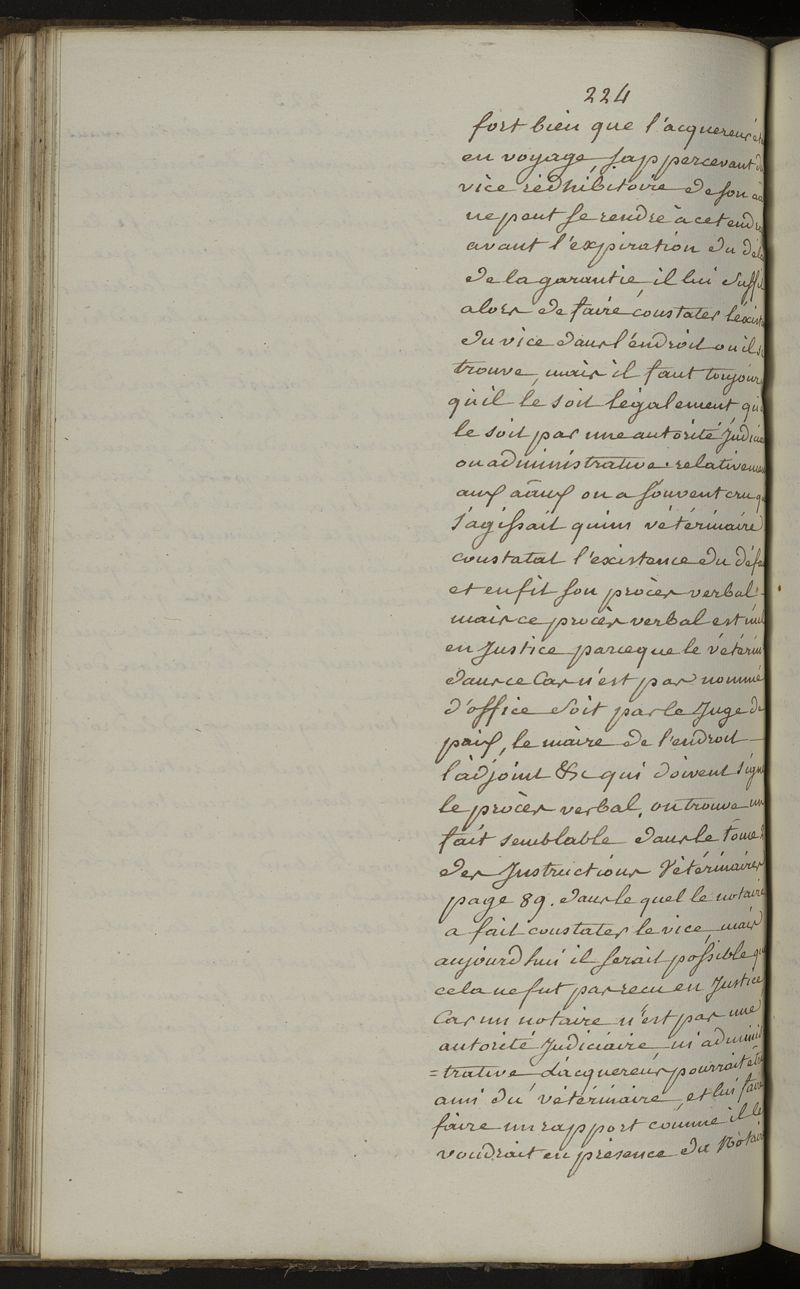 224
fort bien que l'acquereur
en voyage s'appercevant
vice rédhibitoire de son
ne peut se rendre à cet
avant l'expiration du
de la garantie, il lui suffi
alors de faire constater
du vice dans l'endroit ou il
trouve, mais il faut toujour
qu'il le soit légalement qu'
le soit par une autorité Judi
ou administrative. relativeme
aux on a souvent cru
s'agissait qu'un vétérinaire
constatat l'existence du
et en fit son procès verbal
mais ce procès verbal est
en Justice parceque le vétérin
dans ce Cas n'est pas nommé
d'office soit par le Juge de
paix, le maire de l'endroit
l'adjoint &c qui doivent sign
le procès verbal, on trouve un
fait semblable dans le tôme
des Instructions Vétérinaires
page 89. dans le quel le notaire
a fait constater le vice, mais
aujourd'hui il serait possible
cela ne fut pas recu en Justice
Car un notaire n'est pas une
autorité Judiciaire ni admini
=trative. L'acquereur pourrait
ami du vétérinaire, et lui
faire un rapport comme il le
voudrait en présence du Notair